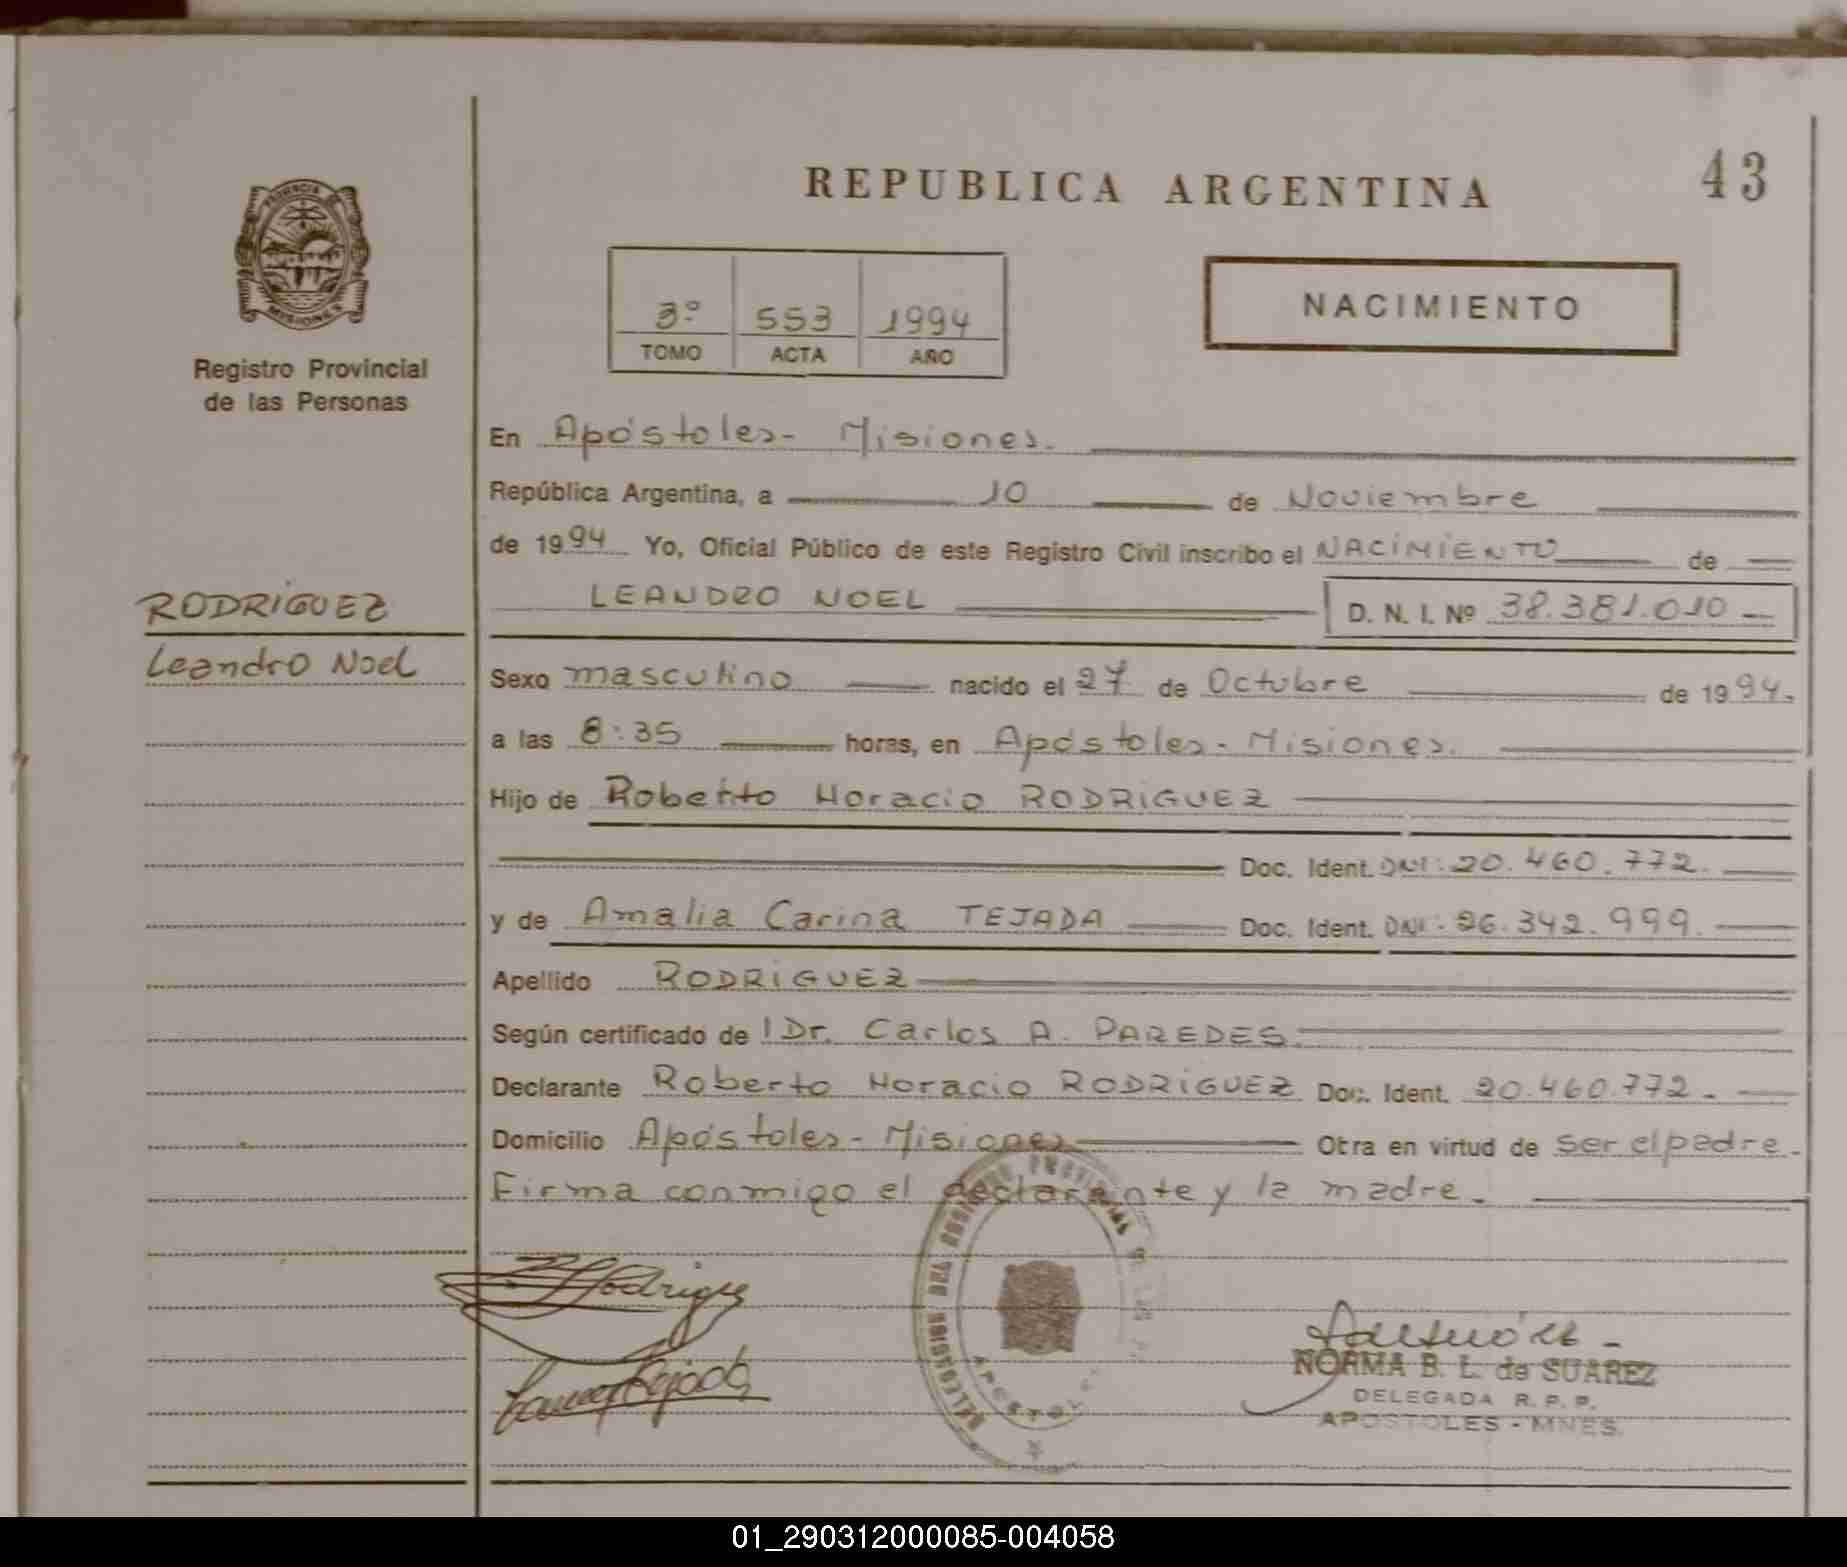 REPUBLICA ARGENTINA
43
PROVINCIA
MISIONES
Registro Provincial
de las Personas
3º 553 1994
TOMO ACTA AÑO
NACIMIENTO
En Apóstoles - Misiones.
República Argentina, a 10 de Noviembre
de 1994 Yo, Oficial Público de este Registro Civil inscribo el NACIMIENTO de
LEANDRO NOEL D. N. I. Nº 38.381.010
RODRIGUEZ
Leandro Noel
Sexo masculino nacido el 27 de Octubre de 1994.
a las 8:35 horas, en Apóstoles - Misiones.
Hijo de Roberto Horacio RODRIGUEZ
Doc. Ident. DNI: 20.460.772.
y de Amalia Carina TEJADA Doc. Ident. DNI: 26.342.999.
Apellido RODRIGUEZ
Según certificado de l Dr. Carlos A. PAREDES.
Declarante Roberto Horacio RODRIGUEZ Doc. Ident. 20.460.772.
Domicilio Apóstoles - Misiones Obra en virtud de ser el padre.
Firma conmigo el declarante y la madre.
NORMA B. L. de SUAREZ
DELEGADA R. P. P.
APOSTOLES - MNES.
01_290312000085-004058